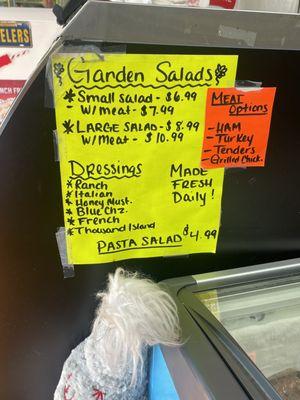 ELERS
Garden Salads
* Small Salad - $6.99
w/ meat - $7.49
* LARGE SALAD - $8.99
w/ Meat - $10.99
Dressings
* Ranch
* Italian
* Honey Must.
* Blue Chz.
* French
* Thousand Island
MADE
FRESH
Daily!
PASTA SALAD $4.99
MEAT
OPTIONS
- HAM
- Turkey
- Tenders
- Grilled Chick.